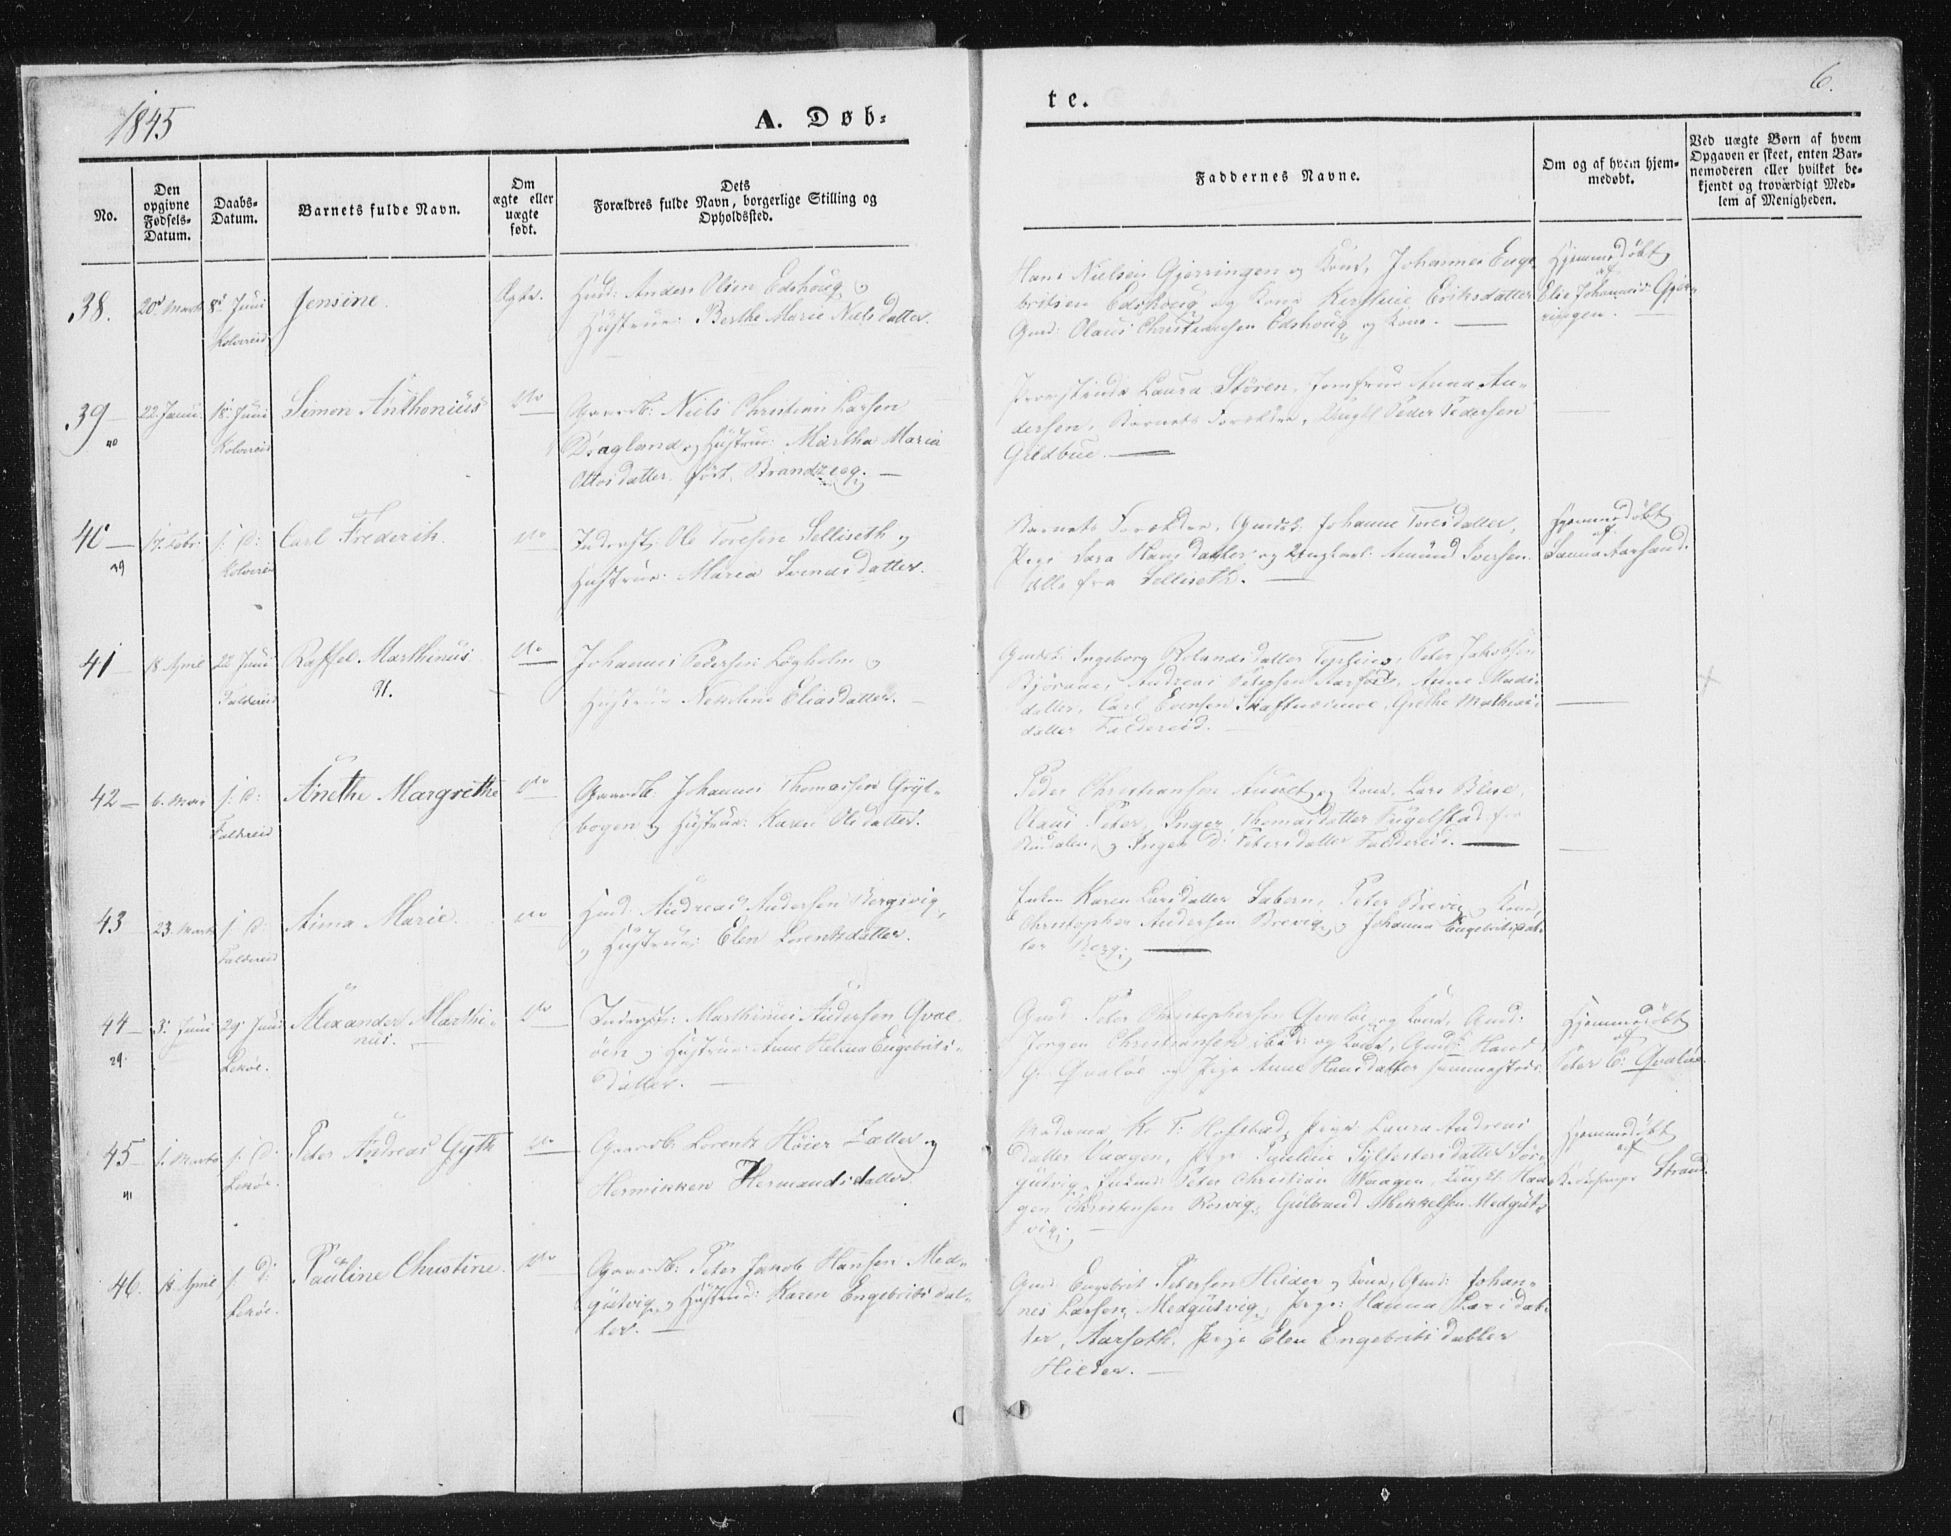 1845
A. Døb-
te.
6.
No.
Den opgivne Fødsels-Datum.
Daabs-Datum.
Barnets fulde Navn.
Om ægte eller uægte født.
Dets Forældres fulde Navn, borgerlige Stilling og Opholdssted.
Faddernes Navne.
Om og af hvem hjem-medøbt.
Ved uægte Børn af hvem Opgaven er skeet, enten Bar-nemoderen eller hvilket be-kjendt og troværdigt Med-lem af Menigheden.
38.
20de Marts
8de Juni
Kolvereid
Jensine.
Ægte.
Husd: Anders Olsen Edshoug og
Hustrue: Berthe Marie Nielsdatter.
Hans Nielsen Gjerringen og Kone, Johannes Enge-
britsen Edshoug og Kone Kerstine Eriksdatter
Gmd: Olaus Christiansen Edshoug og Kone.
Hjemmedøbt
af
Elie Johannesd: Gjer-
ringen.
39
22. Janu.
18. Juni
Kolvereid
Simon Anthonius
do
Gaardb: Niels Christian Larsen
Dragland og Hustrue: Martha Maria
Ottosdatter født Brandzeg.
Laura Støren, Jomfrue Anna An-
dersen, Barnets Forældre, Ungkl Peder Pedersen
Gildbue.
40
29
14. Febr.
s: D:
Kolvereid
Carl Frederik.
do
Inderst: Ole Toresen Selliseth og
Hustrue: Maren Svendsdatter.
Barnets Forældre, Johanne Toresdatter,
Pige Sara Hansdatter og Ungkarl: Amund Iversen
Alle fra Selliseth.
Hjemmedøbt
af
Sanna Aarsand.
41
18 April
22 Juni
Foldereid
Raffel Marthinus
N.
do
Johannes Pedersen Løgholm og
Hustrue Nekoline Eliasdatter.
Ingeborg Rolandsdatter Peter Jakobsen
Bjøraae, Andreas Petersen Anne Mads-
datter, Carl Evensen Skaftnæsmoe, Grethe Mathias-
datter Foldereid.
42
6. Mai
s: D:
Foldereid
Anethe Margrethe
do
Gaardb: Johannes Thomassen Gryt-
bogen og Hustrue: Karen Olsdatter.
Peder Christiansen og Kone, Lars
Olaus Peter, Inger Thomasdatter fra
og Inger D: Petersdatter Foldereid.
43
23. Marts
s: D:
Foldereid
Anna Marie.
do
Husd: Andreas Andersen Bergsvig,
og Hustrue: Elen Lorentsdatter.
Enken Karen Larsdatter Peter Brevig og Kone,
Christopher Andersen Brevig, og Johanna Engebritsdat-
ter Berg.
44
29.
3. Juni
29 Juni
Lekøe.
Alexander Marthi-
nus.
do
Inderst: Marthinus Andersen Qval-
øen og Hustrue: Anne Helena Engebrits-
datter.
Gmd: Peter Christophersen Qvaløe og Kone, Gmd:
Jørgen Christiansen ibid: og Kone, Gmds:
G: Qvaløe og Pige Anne Hansdatter sammesteds.
Hjemmedøbt
af
Peter C: Qvaløe.
45
1. Marts
s: D:
Lekøe.
Peter Andreas Gyth
do
Gaardb: Lorents Høier Zetler og
Hermikken Hermandsdatter.
Madame K. T: Hofstad, Pige Laura Andreas
datter Vaagen, Pige Pauline Sylfestersdatter
Peter Christian Waagen, Ungkl Haa-
gen Christensen Rosvig, Gulbrand Mikkelsen Medgut-
vig.
Hjemmedøbt
af
Strand
46.
18. April
s: D:
Lekøe.
Pauline Christine.
do
Gaardb: Peter Jakob Hansen Med-
gutvig, og Hustrue: Karen Engebritsdat-
ter.
Gmd: Engebrit Petersen Hilder og Kone, Gmd: Johan-
nes Larsen Medgutvig, Pige: Hanna Larsdat-
ter, Aarseth. Pige Elen Engebritsdatter
Hilder.